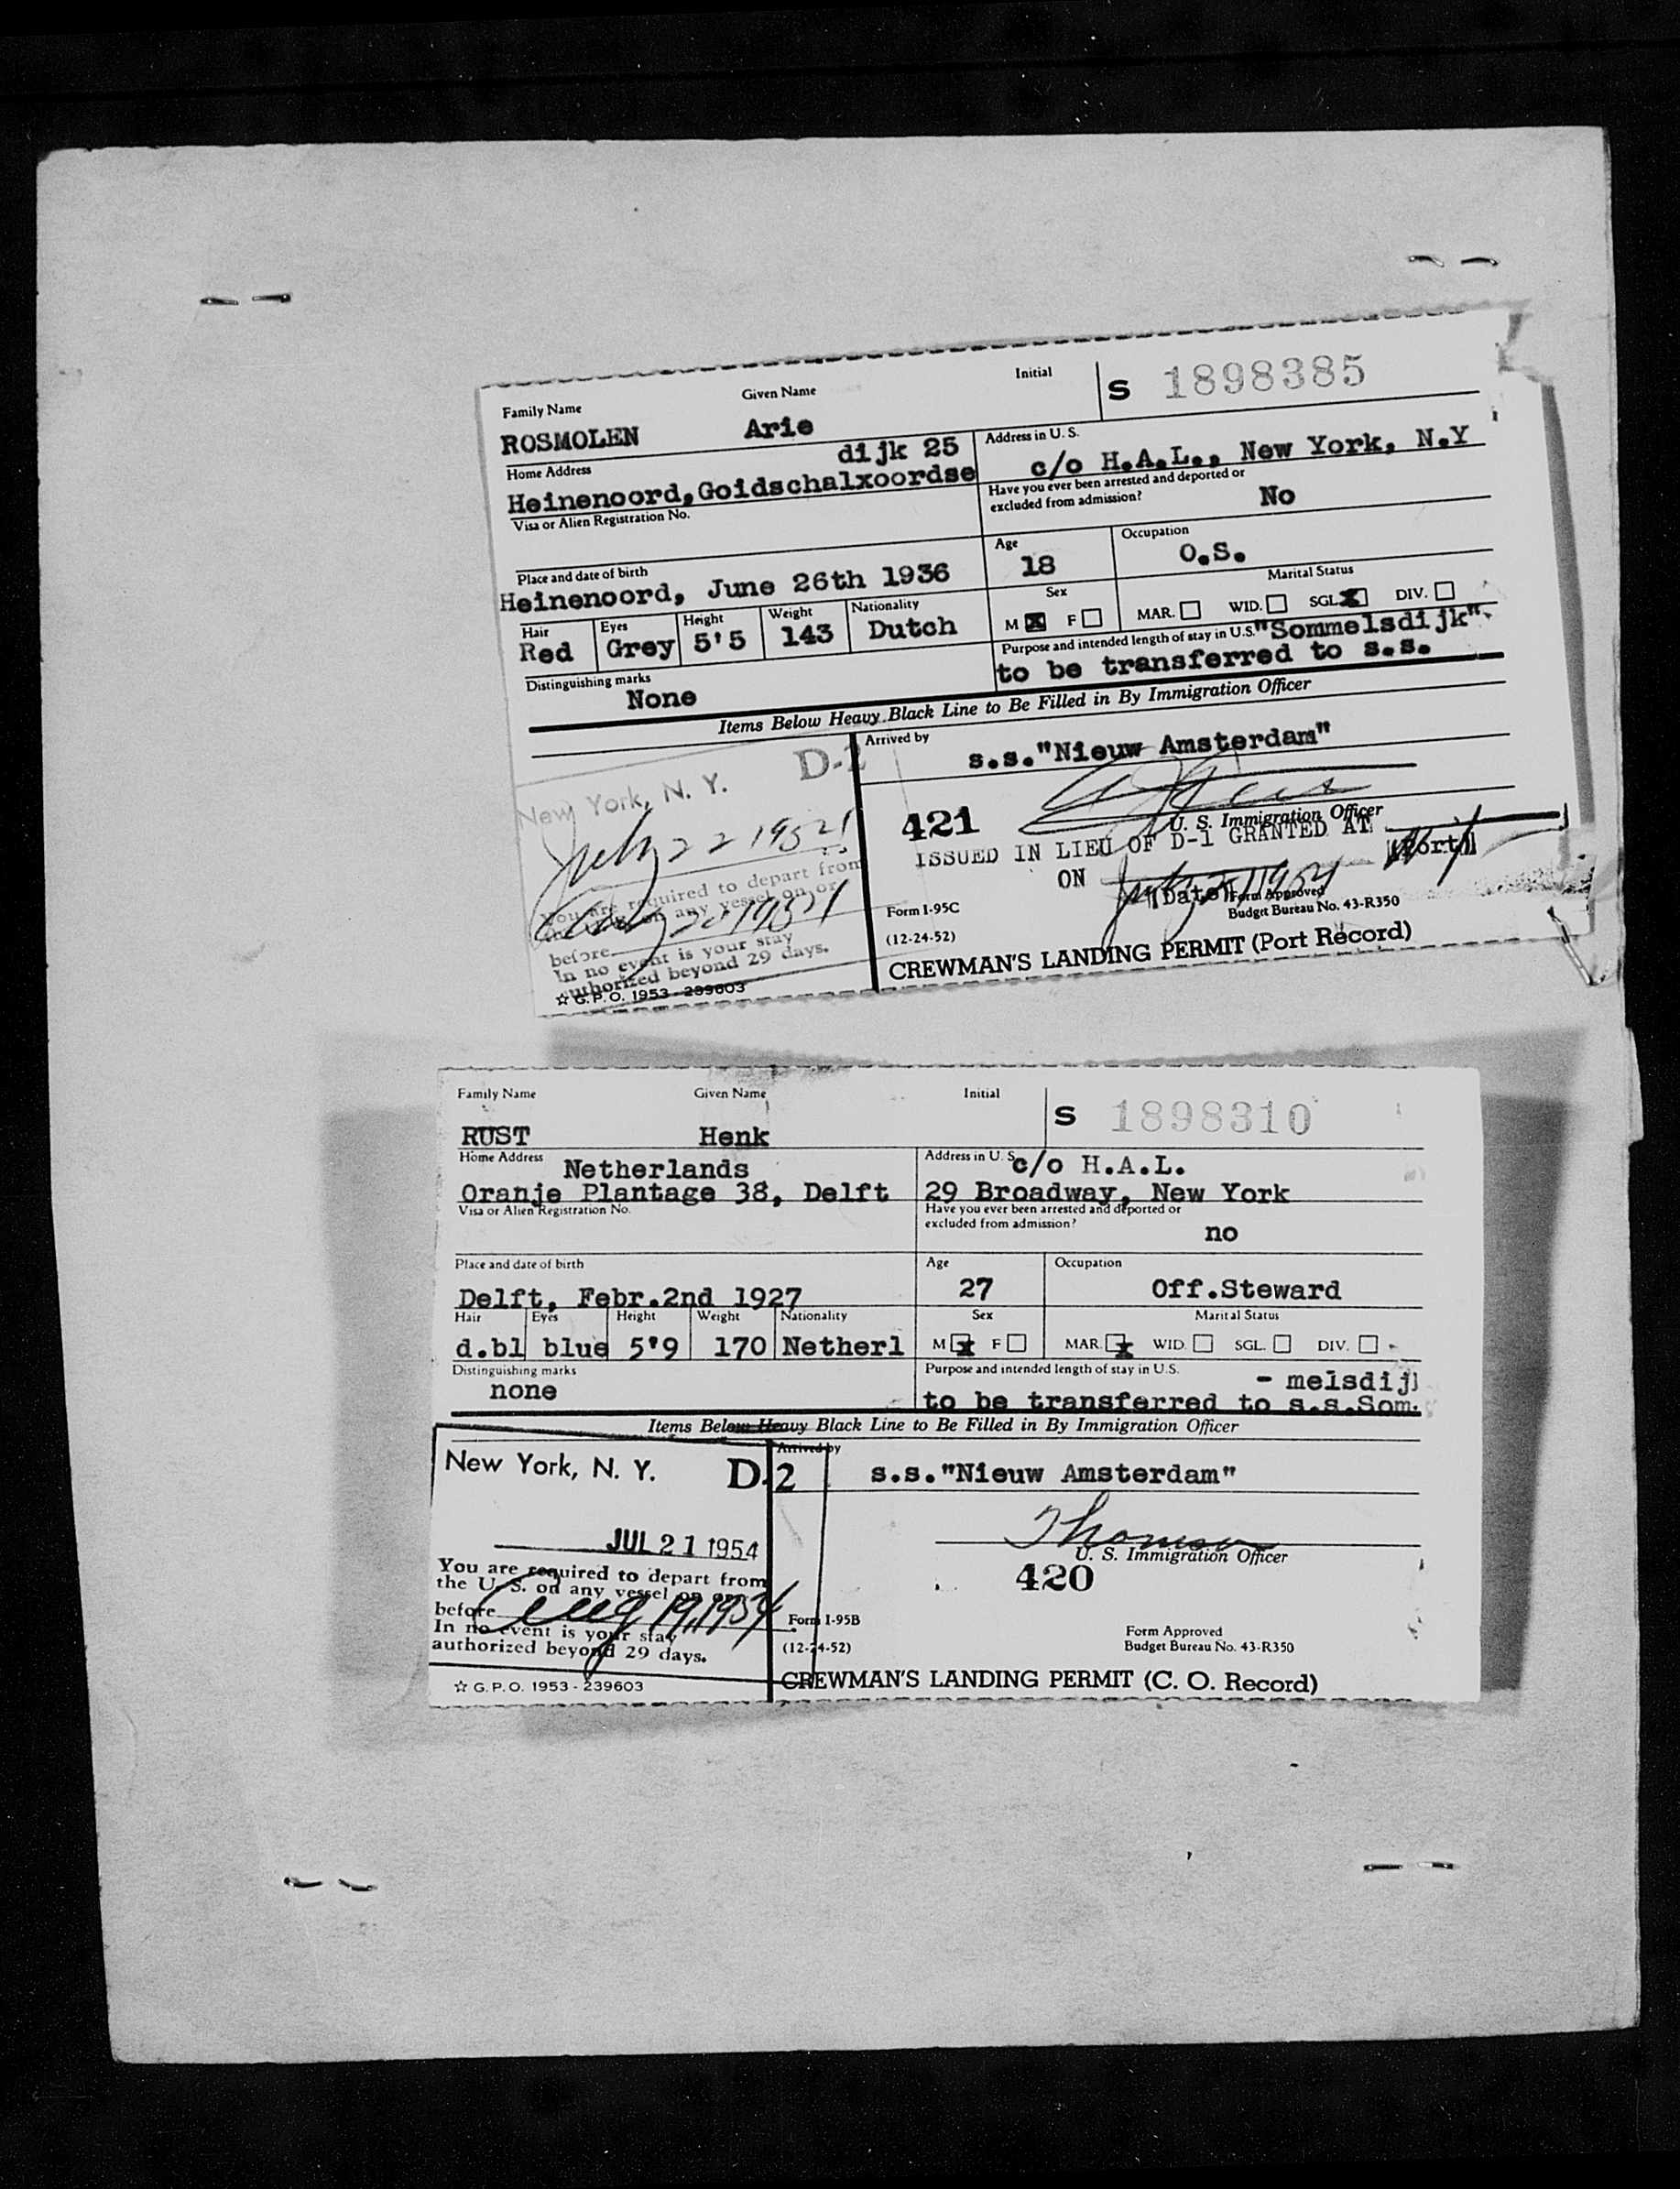 Family Name Given Name Initial S 1898385
ROSMOLEN Arie
Home Address dijk 25 Address in U. S.
Heinenoord,Goidschalxoordse c/o H.A.L., New York, N.Y
Visa or Alien Registration No. Have you ever been arrested and deported or
excluded from admission? No
Place and date of birth Age Occupation
Heinenoord, June 26th 1936 18 O.S.
Hair Eyes Height Weight Nationality Sex Marital Status
Red Grey 5'5 143 Dutch M X F MAR. WID. SGL. X DIV.
Distinguishing marks Purpose and intended length of stay in U.S. "Sommelsdijk".
None to be transferred to s.s.
Items Below Heavy Black Line to Be Filled in By Immigration Officer
New York, N. Y. D-2 Arrived by s.s."Nieuw Amsterdam"
July 22 1954
421 U. S. Immigration Officer
ISSUED IN LIEU OF D-1 GRANTED AT (Port)
ON (Date)
You are required to depart from
any vessel on or
before
In no event is your stay
authorized beyond 29 days.
☆ G.P.O. 1953-239603
Form I-95C Form Approved
(12-24-52) Budget Bureau No. 43-R350
CREWMAN'S LANDING PERMIT (Port Record)
Family Name Given Name Initial S 1898310
RUST Henk
Home Address Netherlands Address in U. S. c/o H.A.L.
Oranje Plantage 38, Delft 29 Broadway, New York
Visa or Alien Registration No. Have you ever been arrested and deported or
excluded from admission? no
Place and date of birth Age Occupation
Delft, Febr.2nd 1927 27 Off.Steward
Hair Eyes Height Weight Nationality Sex Marital Status
d.bl blue 5'9 170 Netherl M x F MAR. x WID. SGL. DIV.
Distinguishing marks Purpose and intended length of stay in U.S. - melsdij
none to be transferred to s.s.Som.
Items Below Heavy Black Line to Be Filled in By Immigration Officer
New York, N. Y. D-2 Arrived by s.s."Nieuw Amsterdam"
JUL 21 1954 Thomson
U. S. Immigration Officer
420
You are required to depart from
the U. S. on any vessel on or
before Aug 19, 1954
In no event is your stay
authorized beyond 29 days.
☆ G.P.O. 1953-239603
Form I-95B Form Approved
(12-24-52) Budget Bureau No. 43-R350
CREWMAN'S LANDING PERMIT (C. O. Record)